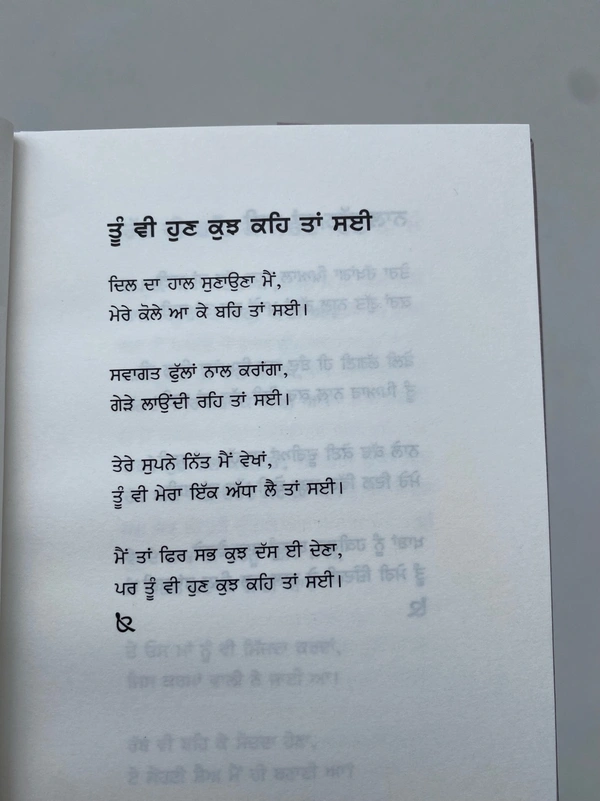 ਤੂੰ ਵੀ ਹੁਣ ਕੁਝ ਕਹਿ ਤਾਂ ਸਈ
ਦਿਲ ਦਾ ਹਾਲ ਸੁਣਾਉਣਾ ਮੈਂ,
ਮੇਰੇ ਕੋਲੇ ਆ ਕੇ ਬਹਿ ਤਾਂ ਸਈ।
ਸਵਾਗਤ ਫੁੱਲਾਂ ਨਾਲ ਕਰਾਂਗਾ,
ਗੇੜੇ ਲਾਉਂਦੀ ਰਹਿ ਤਾਂ ਸਈ।
ਤੇਰੇ ਸੁਪਨੇ ਨਿੱਤ ਮੈਂ ਵੇਖਾਂ,
ਤੂੰ ਵੀ ਮੇਰਾ ਇੱਕ ਅੱਧਾ ਲੈ ਤਾਂ ਸਈ।
ਮੈਂ ਤਾਂ ਫਿਰ ਸਭ ਕੁਝ ਦੱਸ ਈ ਦੇਣਾ,
ਪਰ ਤੂੰ ਵੀ ਹੁਣ ਕੁਝ ਕਹਿ ਤਾਂ ਸਈ।